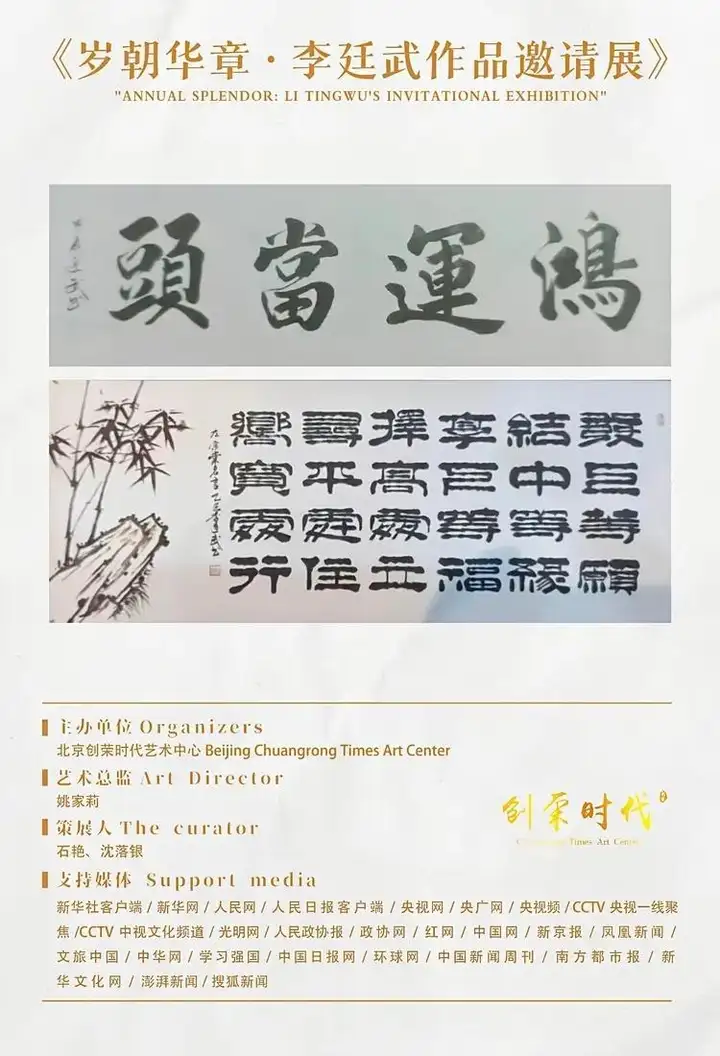 《岁朝华章·李廷武作品邀请展》
"ANNUAL SPLENDOR: LI TINGWU'S INVITATIONAL EXHIBITION"
鴻運當頭
發巨等願
結中等緣
享巨等福
擇高處立
尋平處住
嚮寬處行
左宗棠名言乙巳李廷武书
主办单位 Organizers
北京创荣时代艺术中心 Beijing Chuangrong Times Art Center
艺术总监 Art Director
姚家莉
策展人 The curator
石艳、沈落银
创荣时代
Times Art Center
支持媒体 Support media
新华社客户端 / 新华网 / 人民网 / 人民日报客户端 / 央视网 / 央广网 / 央视频 / CCTV 央视一线聚
焦 /CCTV 中视文化频道 / 光明网 / 人民政协报 / 政协网 / 红网 / 中国网 / 新京报 / 凤凰新闻 /
文旅中国 / 中华网 / 学习强国 / 中国日报网 / 环球网 / 中国新闻周刊 / 南方都市报 / 新
华文化网 / 澎湃新闻 / 搜狐新闻